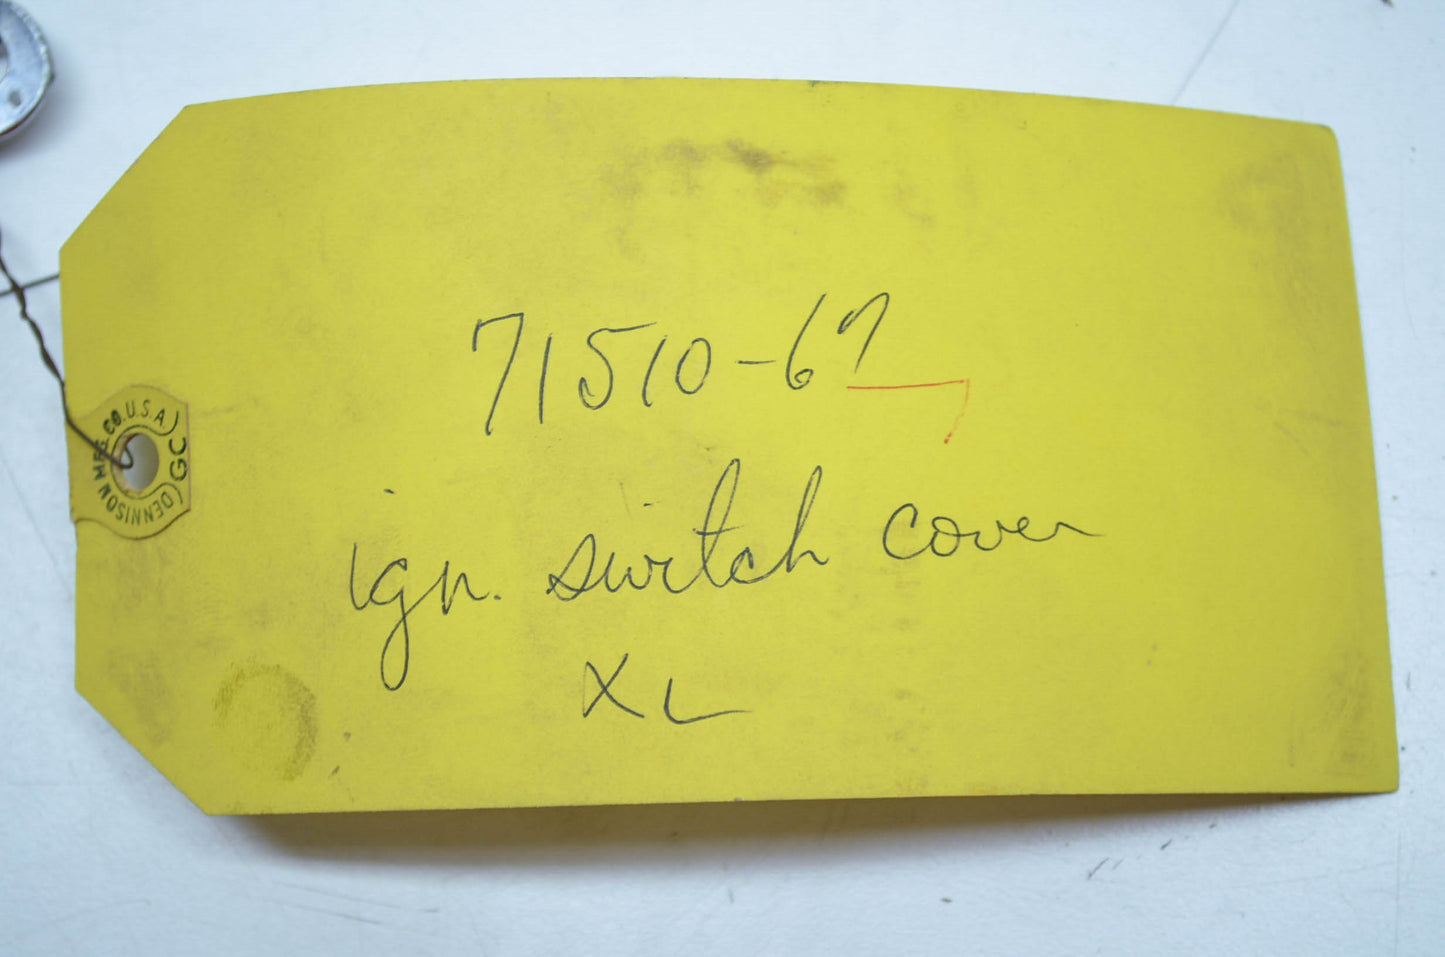 71510-67
ign. switch cover
XL
DENNISON MFG. CO. U.S.A.
GC